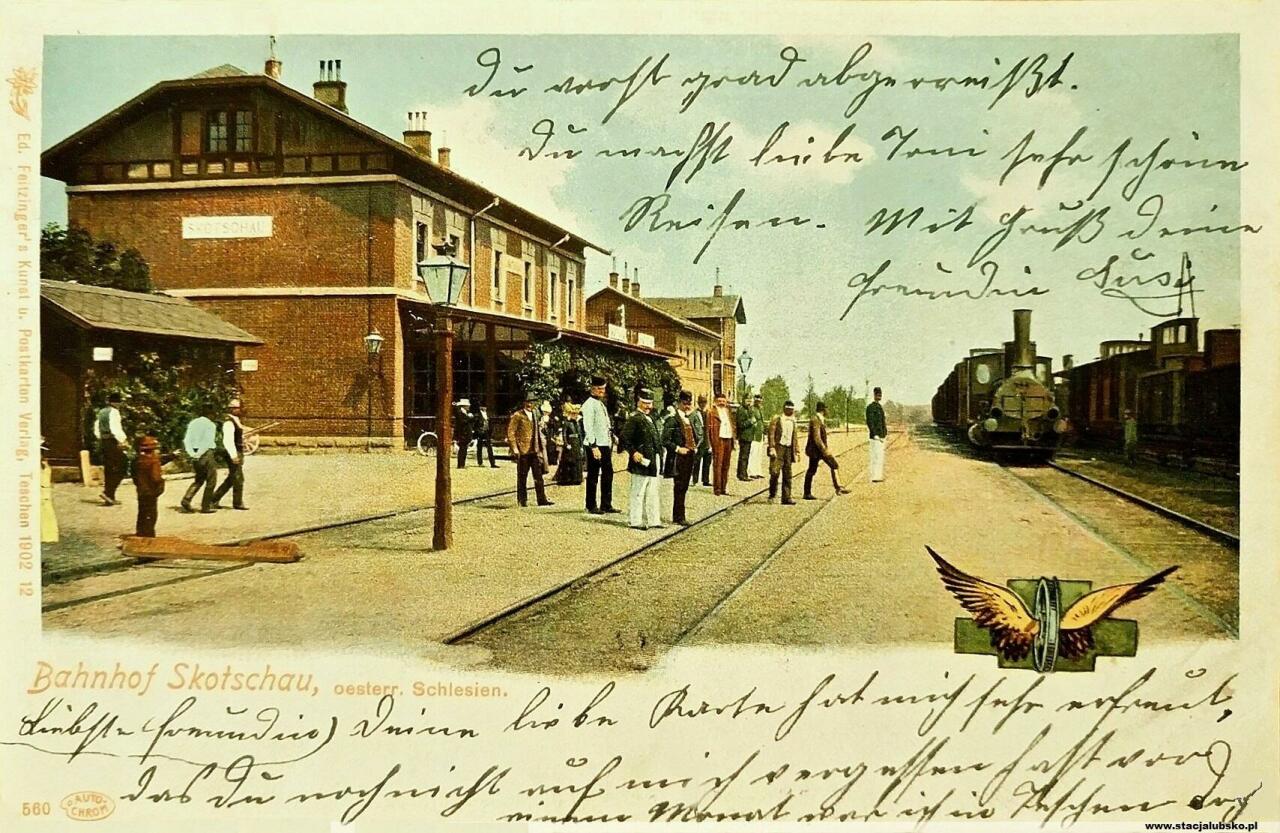 Du warst grad abgerreißt.
Du machst liebe Toni sehr schöne
Reisen. Mit Gruß deine
Freundin Susi
SKOTSCHAU
Ed. Feitzinger's Kunst u. Postkarten Verlag, Teschen 1902 12
Bahnhof Skotschau, oesterr. Schlesien.
Liebste Freundin) Deine liebe Karte hat mich sehr erfreut,
das Du noch nicht auf mich vergessen hast vor
einem Monat war ich in Teschen
560 AUTO-CHROM
www.stacjalubsko.pl